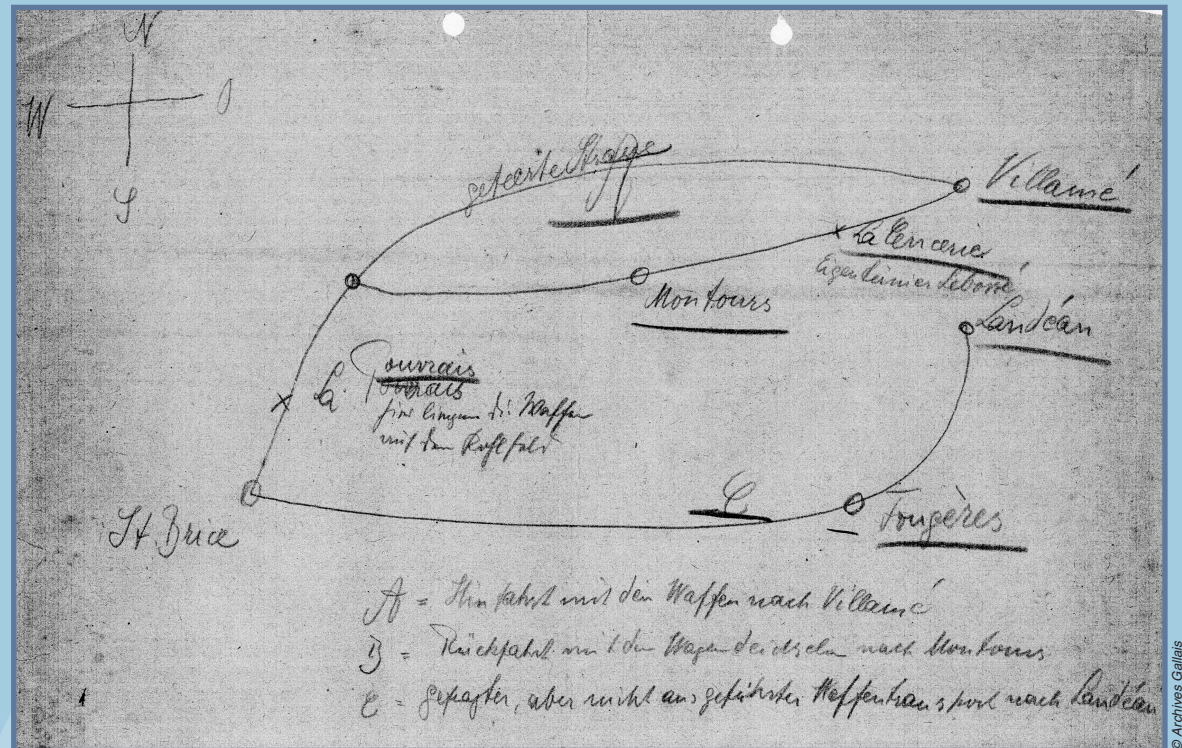 N
W O
S
geteerte Straße
Villamé
La Tencerie
Eigentümer Lebossé
Montours
Landéan
La Pouvrais
Pouvrais
hier liegen die Waffen
auf dem Kohlfeld
C
Fougères
St. Brice
A = Hinfahrt mit den Waffen nach Villamé
B = Rückfahrt mit den Wagendeichseln nach Montours
C = geplanter, aber nicht ausgeführter Waffentransport nach Landéan
© Archives Gallais